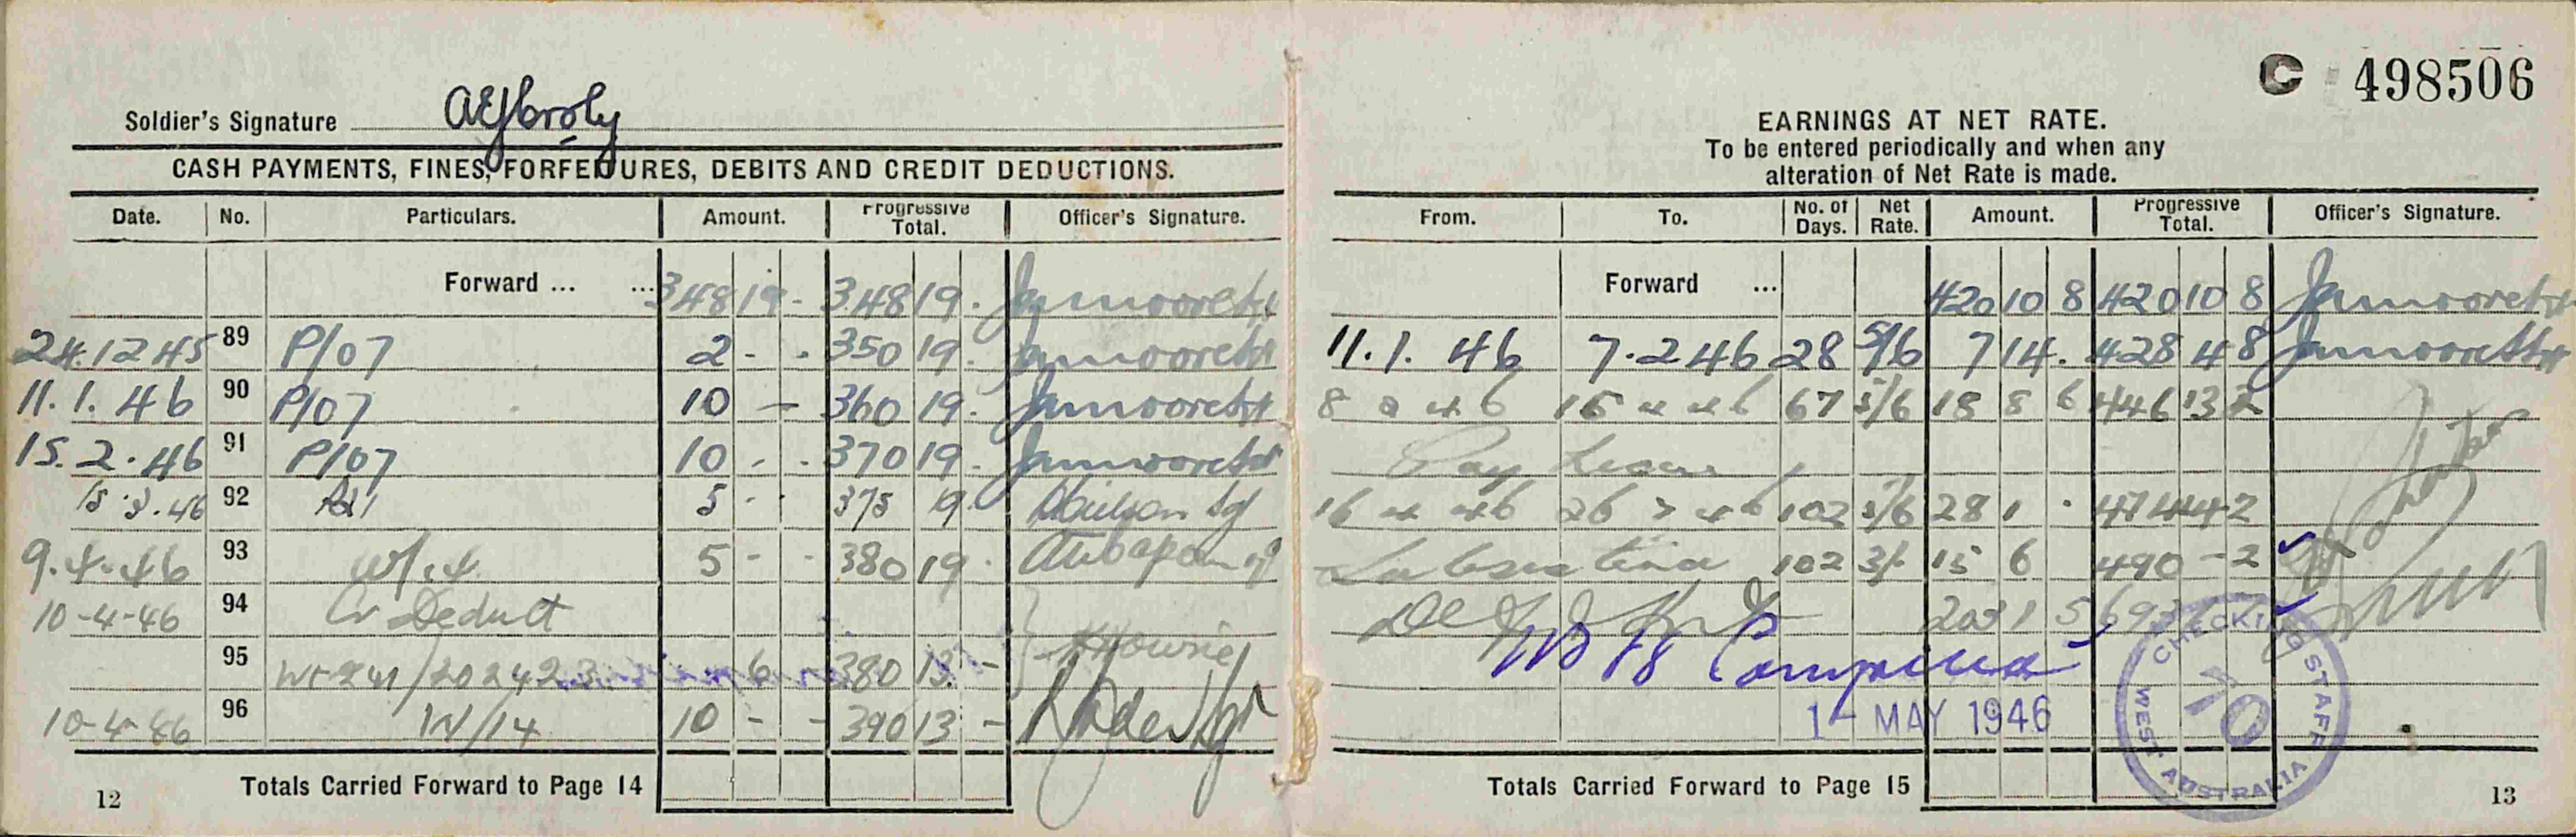 C 498506
Soldier's Signature
CASH PAYMENTS, FINES, FORFEITURES, DEBITS AND CREDIT DEDUCTIONS.
Date. No. Particulars. Amount. Progressive Total. Officer's Signature.
Forward ... ... 348 19 - 348 19 -
24.12 45 89 P/07 2 - - 350 19 -
11. 1. 46 90 P/07 10 - 360 19 -
15. 2. 46 91 P/07 10 - - 370 19 -
15.3.46 92 5 - - 375 19
9.4.46 93 5 - - 380 19 -
10-4-46 94 Cr Deduct
95 6 380 13 -
10-4-46 96 W/14 10 - - 390 13 -
Totals Carried Forward to Page 14
12
EARNINGS AT NET RATE.
To be entered periodically and when any
alteration of Net Rate is made.
From. To. No. of Days. Net Rate. Amount. Progressive Total. Officer's Signature.
Forward ... 420 10 8 420 10 8
11. 1. 46 7. 2 46 28 5/6 7 14 . 428 4 8
8 2 46 15 4 46 67 5/6 18 8 6 446 13 2
Pay Leave
16 4 46 26 7 46 102 5/6 28 1 . 474 14 2
102 3/- 15 6 490 - 2
1 - MAY 1946
CHECKING STAFF
70
WEST AUSTRALIA
Totals Carried Forward to Page 15
13